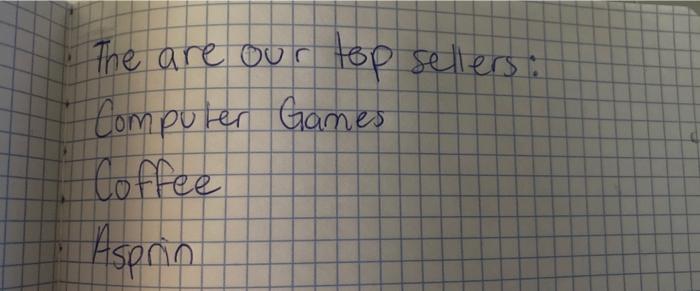 The are our top sellers:
Computer Games
Coffee
Asprin